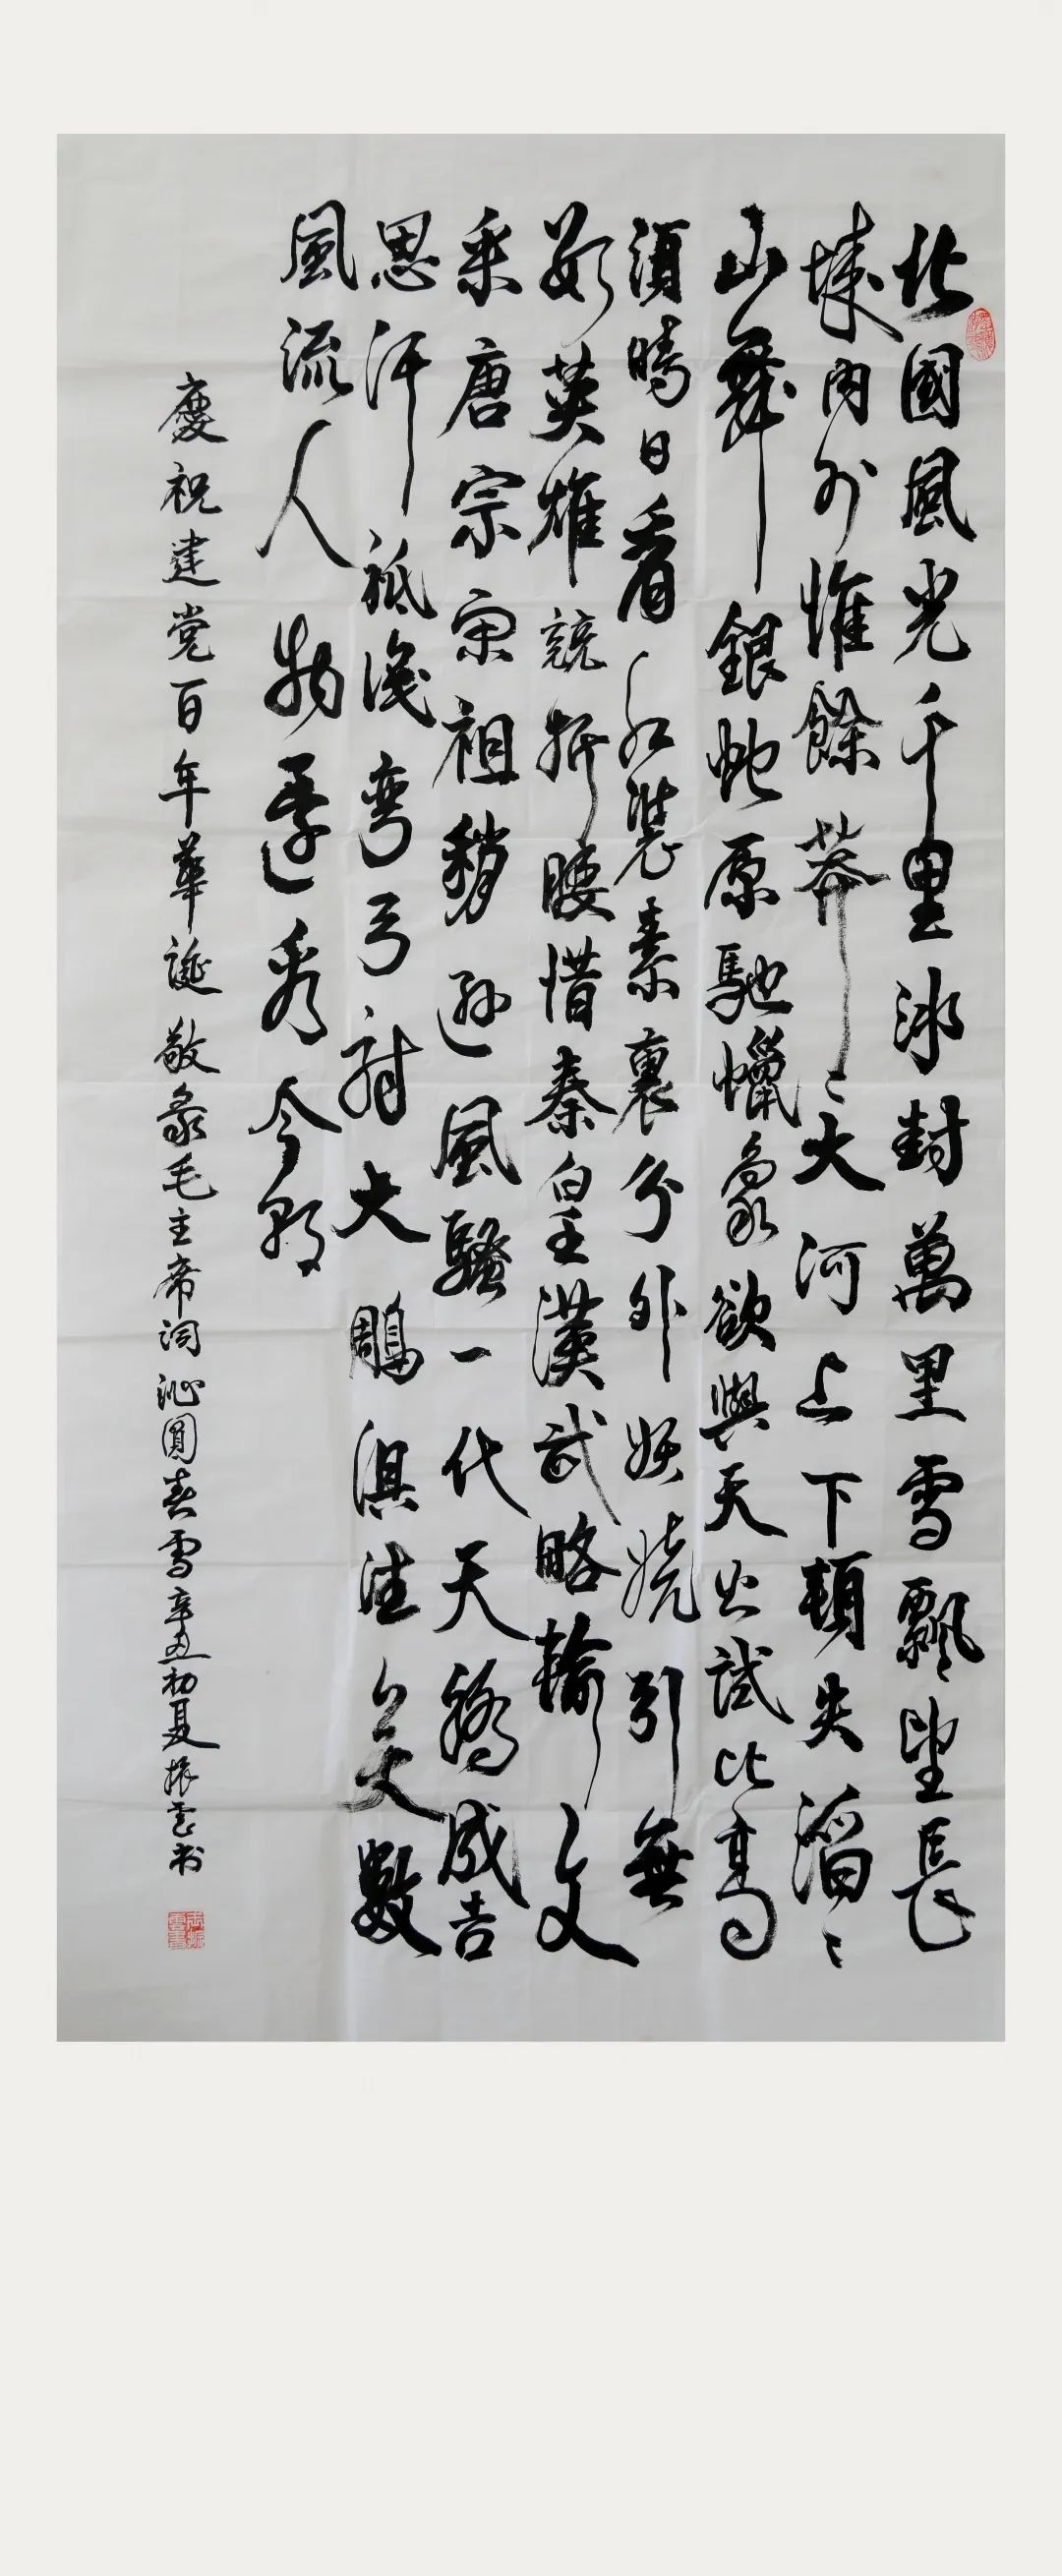 北國風光千里冰封萬里雪飄望長
城內外惟餘莽〻大河上下頓失滔〻
山舞銀蛇原馳蠟象欲與天公試比高
須晴日看紅裝素裹分外妖嬈引無
數英雄競折腰惜秦皇漢武略輸文
采唐宗宋祖稍遜風騷一代天驕成吉
思汗祗識弯弓射大鵰俱往矣數
風流人物還看今朝
慶祝建党百年華誕敬录毛主席词沁圓春雪辛丑初夏振雲书